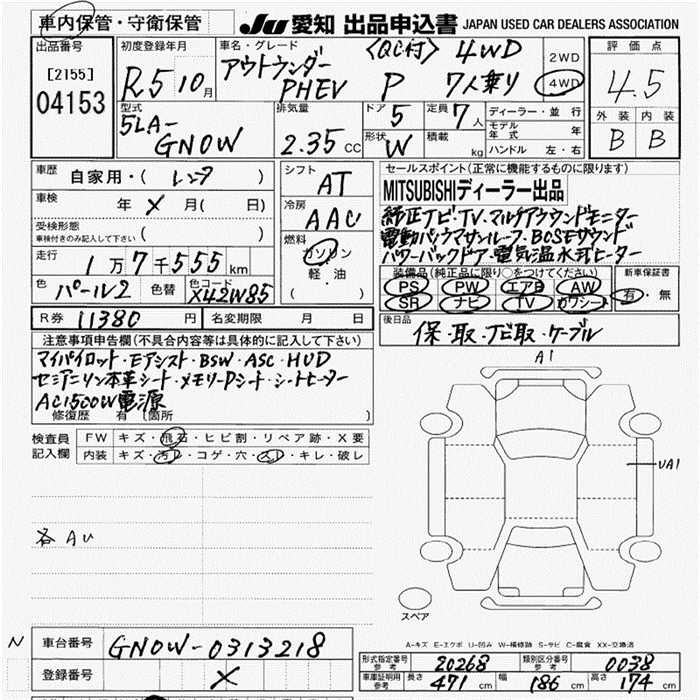 車内保管・守衛保管
JU 愛知 出品申込書 JAPAN USED CAR DEALERS ASSOCIATION
出品番号
[2155]
04153
初度登録年月
R5 10月
車名・グレード
〈QC付〉 4WD
アウトランダー
PHEV P 7人乗り
2WD
4WD
評価点
4.5
外装 内装
B B
型式
5LA-
GN0W
排気量
2.35 CC
ドア 5
定員 7人
形状 W
積載 kg
ディーラー・並行
モデル年式 年
ハンドル 左・右
車歴
自家用・( レンタ )
車検
年 X 月( 日)
受検形態
車検付きのみ記入して下さい ( )
走行
1万7千555km
色 パール2
色替
色コード X42W85
シフト
AT
冷房
AAC
燃料
ガソリン
軽・油
( )
セールスポイント(正常に機能するものに限ります)
MITSUBISHIディーラー出品
純正ナビ・TV・マルチアラウンドモニター
電動パノラマサンルーフ・BOSEサウンド
パワーバックドア・電気温水式ヒーター
装備品(純正品に限り○をつけてください)
PS PW エアB AW
SR ナビ TV カワシート
新車保証書
有・無
R券 11380 円
名変期限 月 日
後日品
保・取・ナビ取・ケーブル
注意事項申告欄(不具合内容等は具体的に記入して下さい)
マイパイロット・Eアシスト・BSW・ASC・HUD
セミアニリン本革シート・メモリーPシート・シートヒーター
AC1500W電源
修復歴 有 〔箇所 〕
検査員記入欄
FW キズ・飛石・ヒビ割・リペア跡・X要
内装 キズ・汚レ・コゲ・穴・スレ・キレ・破レ
各AU
A1
UA1
スペア
A-キズ E-エクボ U-凹み W-補修跡 S-サビ C-腐食 XX-交換済
N
車台番号 GN0W-0313218
登録番号 X
形式指定番号 参考 20268
類別区分番号 参考 0038
車庫証明用 参考 長さ 471 cm 幅 186 cm 高さ 174 cm